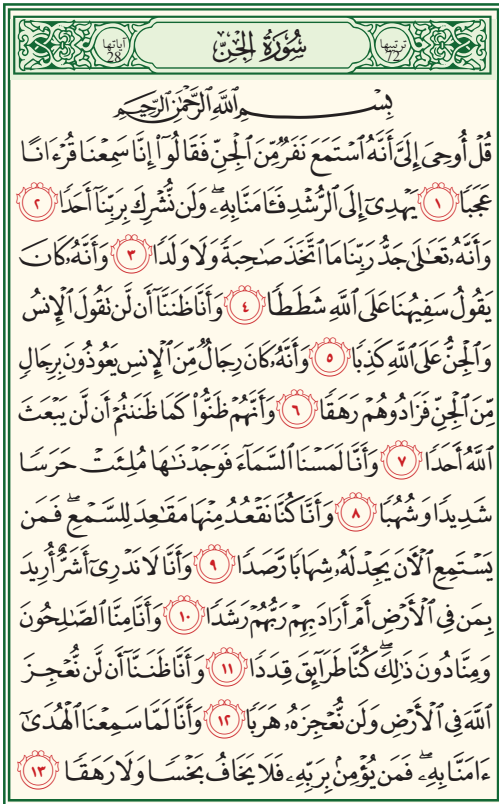 ترتيبها 72 سُورَةُ الجِنّ آياتها 28
بِسْمِ ٱللَّهِ ٱلرَّحْمَٰنِ ٱلرَّحِيمِ
قُلْ أُوحِيَ إِلَيَّ أَنَّهُ ٱسْتَمَعَ نَفَرٌ مِّنَ ٱلْجِنِّ فَقَالُوٓا۟ إِنَّا سَمِعْنَا قُرْءَانًا
عَجَبًا ١ يَهْدِىٓ إِلَى ٱلرُّشْدِ فَـَٔامَنَّا بِهِۦۖ وَلَن نُّشْرِكَ بِرَبِّنَآ أَحَدًا ٢
وَأَنَّهُۥ تَعَٰلَىٰ جَدُّ رَبِّنَا مَا ٱتَّخَذَ صَٰحِبَةً وَلَا وَلَدًا ٣ وَأَنَّهُۥ كَانَ
يَقُولُ سَفِيهُنَا عَلَى ٱللَّهِ شَطَطًا ٤ وَأَنَّا ظَنَنَّآ أَن لَّن تَقُولَ ٱلْإِنسُ
وَٱلْجِنُّ عَلَى ٱللَّهِ كَذِبًا ٥ وَأَنَّهُۥ كَانَ رِجَالٌ مِّنَ ٱلْإِنسِ يَعُوذُونَ بِرِجَالٍ
مِّنَ ٱلْجِنِّ فَزَادُوهُمْ رَهَقًا ٦ وَأَنَّهُمْ ظَنُّوا۟ كَمَا ظَنَنتُمْ أَن لَّن يَبْعَثَ
ٱللَّهُ أَحَدًا ٧ وَأَنَّا لَمَسْنَا ٱلسَّمَآءَ فَوَجَدْنَٰهَا مُلِئَتْ حَرَسًا
شَدِيدًا وَشُهُبًا ٨ وَأَنَّا كُنَّا نَقْعُدُ مِنْهَا مَقَٰعِدَ لِلسَّمْعِۖ فَمَن
يَسْتَمِعِ ٱلْـَٔانَ يَجِدْ لَهُۥ شِهَابًا رَّصَدًا ٩ وَأَنَّا لَا نَدْرِىٓ أَشَرٌّ أُرِيدَ
بِمَن فِى ٱلْأَرْضِ أَمْ أَرَادَ بِهِمْ رَبُّهُمْ رَشَدًا ١٠ وَأَنَّا مِنَّا ٱلصَّٰلِحُونَ
وَمِنَّا دُونَ ذَٰلِكَۖ كُنَّا طَرَآئِقَ قِدَدًا ١١ وَأَنَّا ظَنَنَّآ أَن لَّن نُّعْجِزَ
ٱللَّهَ فِى ٱلْأَرْضِ وَلَن نُّعْجِزَهُۥ هَرَبًا ١٢ وَأَنَّا لَمَّا سَمِعْنَا ٱلْهُدَىٰٓ
ءَامَنَّا بِهِۦۖ فَمَن يُؤْمِنۢ بِرَبِّهِۦ فَلَا يَخَافُ بَخْسًا وَلَا رَهَقًا ١٣